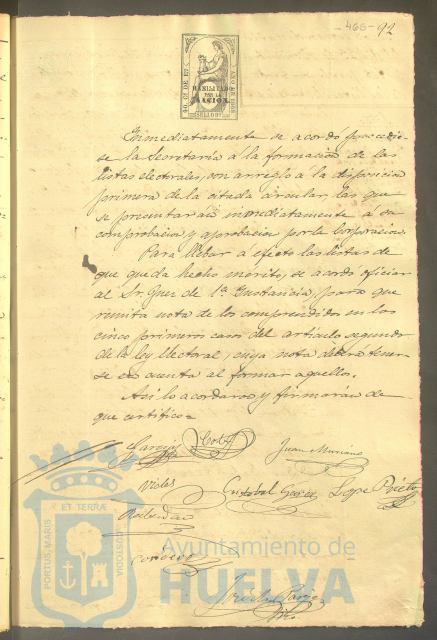 466-92
40. Cs. DE Eº AÑO DE 1868
HABILITADO
POR LA
NACION
SELLO 9º
Inmediatamente se acordó procedie-
se la Secretaría á la formacion de las
listas electorales, con arreglo á la disposicion
primera de la citada circular, las que
se presentarán inmediatamente á su
comprobacion y aprobacion por la Corporacion.
Para llebar á efecto las listas de
que queda hecho mérito, se acordó oficiar
al Sr. Juez de 1ª Instancia, para que
remita nota de los comprendidos en los
cinco primeros casos del artículo segundo
de la ley electoral, cuya nota deberá tener-
se en cuenta al formar aquellos.
Asi lo acordaron y firmarán de
que certifico=
Garcia Juan Muriano
Vides Cristobal Garcia Lope Prieto
PORTUS MARIS ET TERRÆ CUSTODIA
Ayuntamiento de
HUELVA